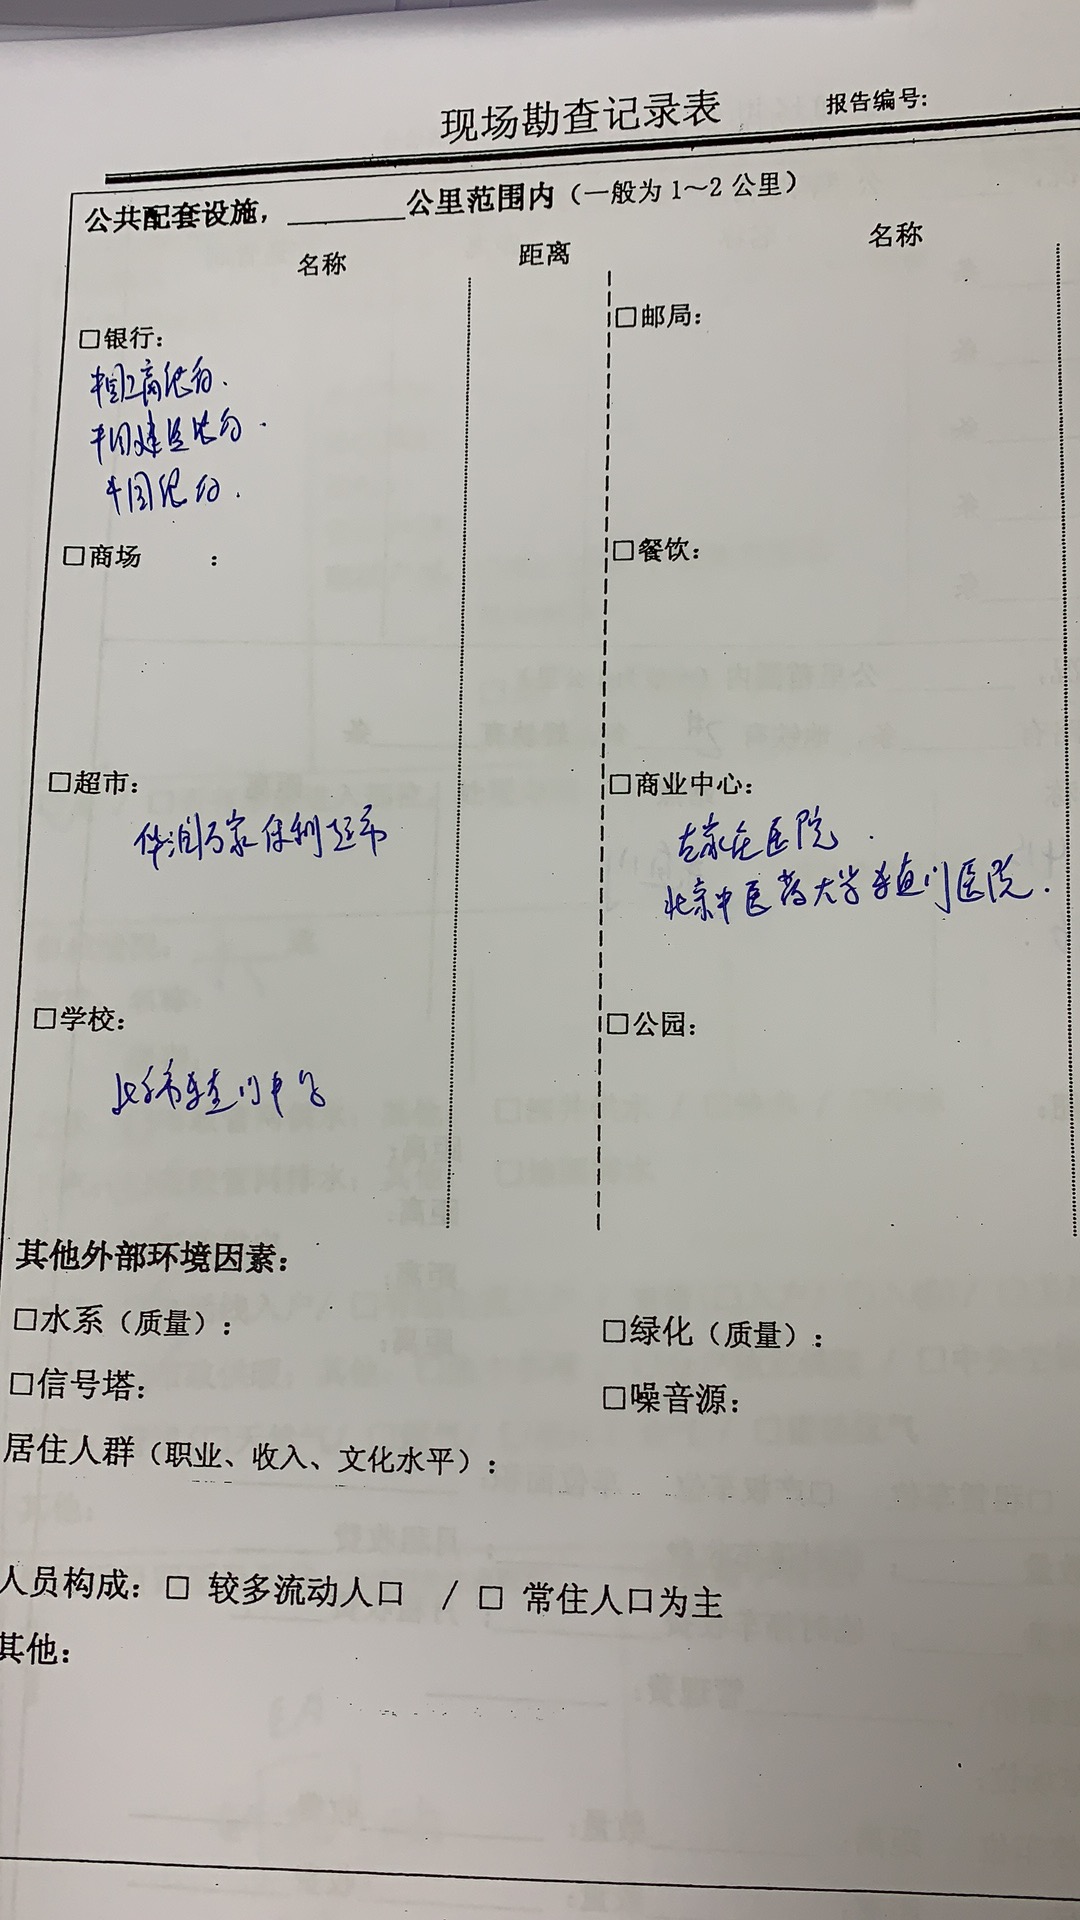 现场勘查记录表
报告编号:
公共配套设施，________公里范围内（一般为1～2公里）
名称 距离 名称
□银行: □邮局:
中国工商银行.
中国建设银行.
中国银行.
□商场 : □餐饮:
□超市: □商业中心:
华润万家保利超市
左家庄医院.
北京中医药大学东直门医院.
□学校: □公园:
北京市东直门中学
其他外部环境因素:
□水系（质量）: □绿化（质量）:
□信号塔: □噪音源:
居住人群（职业、收入、文化水平）:
人员构成: □ 较多流动人口 / □ 常住人口为主
其他: